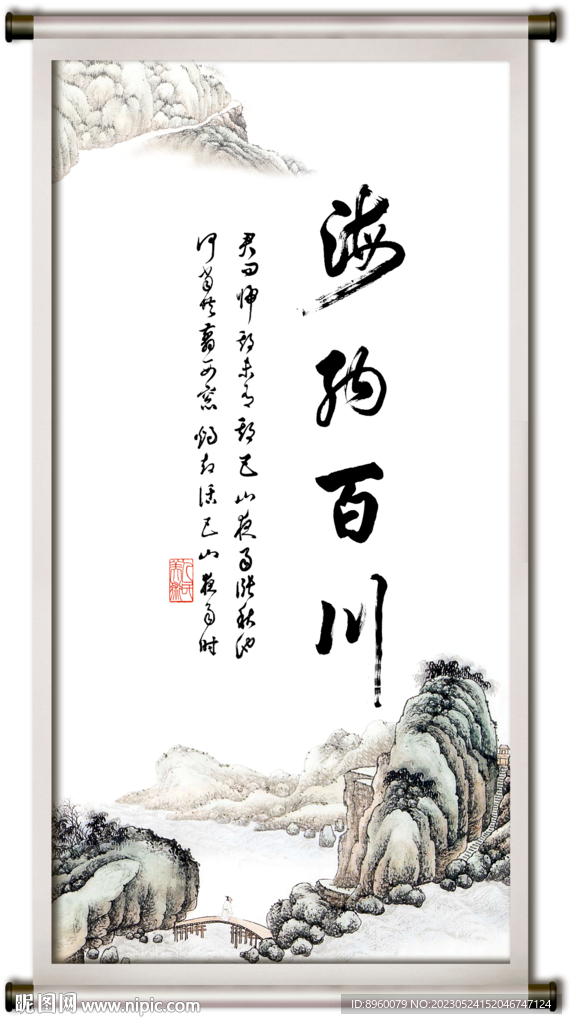 海纳百川
君问归期未有期巴山夜雨涨秋池
何当共剪西窗烛却话巴山夜雨时
昵图网 www.nipic.com
ID:8960079 NO:20230524152046747124